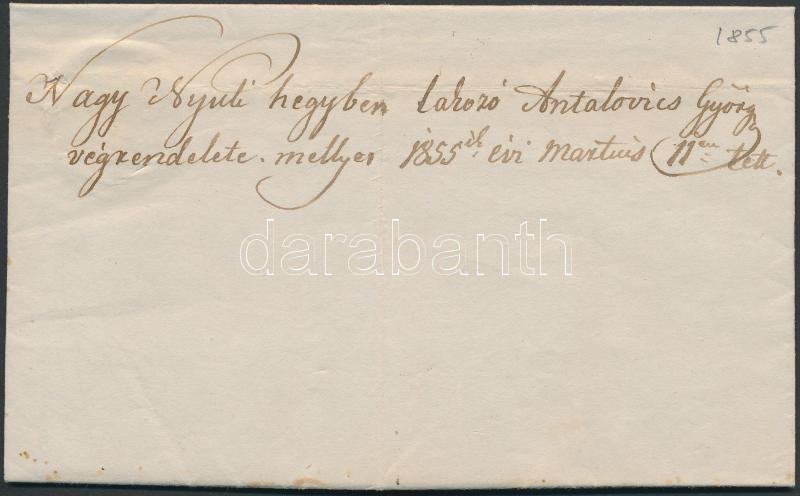 1855
Nagy Nyuli hegyben lakozó Antalovics György
végrendelete. mellyet 1855ik évi Martius 11én tett.
darabanth